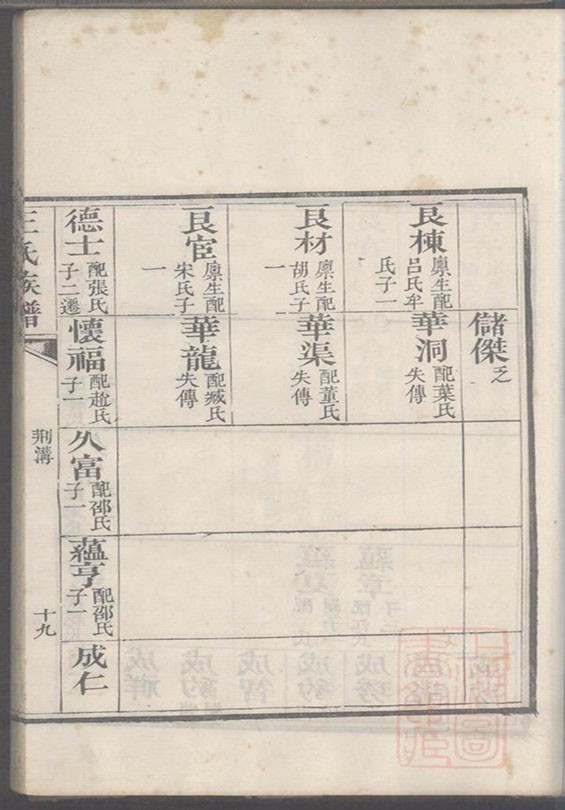 儲傑乏
良棟廩生配呂氏牟氏子一
華洞配葉氏失傳
良材廩生配胡氏子一
華渠配董氏失傳
良宦廩生配宋氏子一
華龍配臧氏失傳
德士配張氏子二遷
懷福配趙氏子一
久富配邵氏子一
蘊亨配邵氏子一
成仁
王氏族譜
荆溝
十九